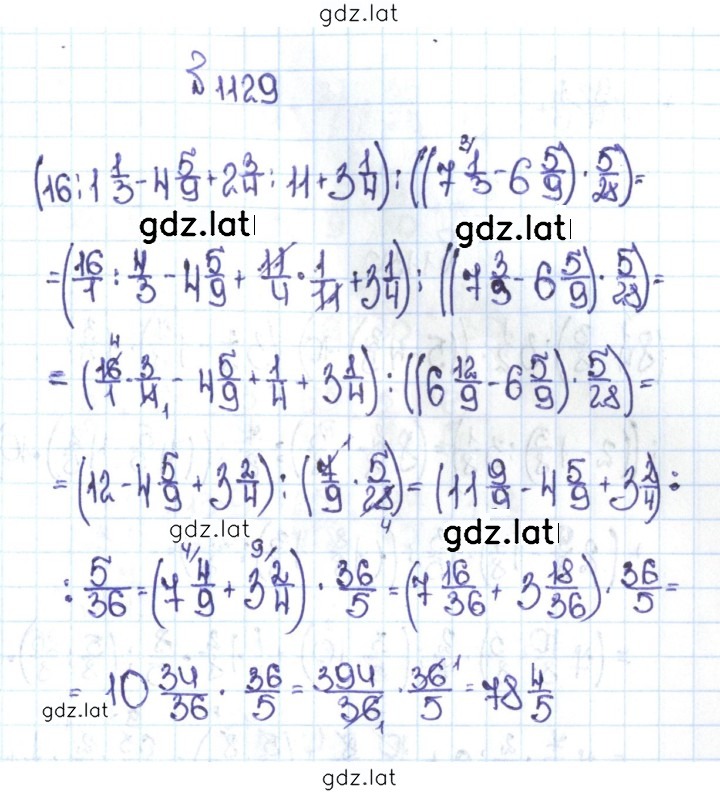 gdz.lat
№ 1129
(16 : 1 1/3 - 4 5/9 + 2 3/4 : 11 + 3 1/4) : ((7 1/3 ³⁄ - 6 5/9) · 5/28) =
gdz.lat gdz.lat
= (16/1 : 4/3 - 4 5/9 + 11/4 · 1/11 + 3 1/4) : ((7 3/9 - 6 5/9) · 5/28) =
= (16/1 ⁴ · 3/4 ₁ - 4 5/9 + 1/4 + 3 1/4) : ((6 12/9 - 6 5/9) · 5/28) =
= (12 - 4 5/9 + 3 2/4) : (7/9 ¹ · 5/28 ₄) = (11 9/9 - 4 5/9 + 3 2/4) :
gdz.lat gdz.lat
: 5/36 = (7 4/9 ⁴⁄ + 3 2/4 ⁹⁄) · 36/5 = (7 16/36 + 3 18/36) · 36/5 =
= 10 34/36 · 36/5 = 394/36 ₁ · 36/5 ¹ = 78 4/5
gdz.lat
gdz.lat